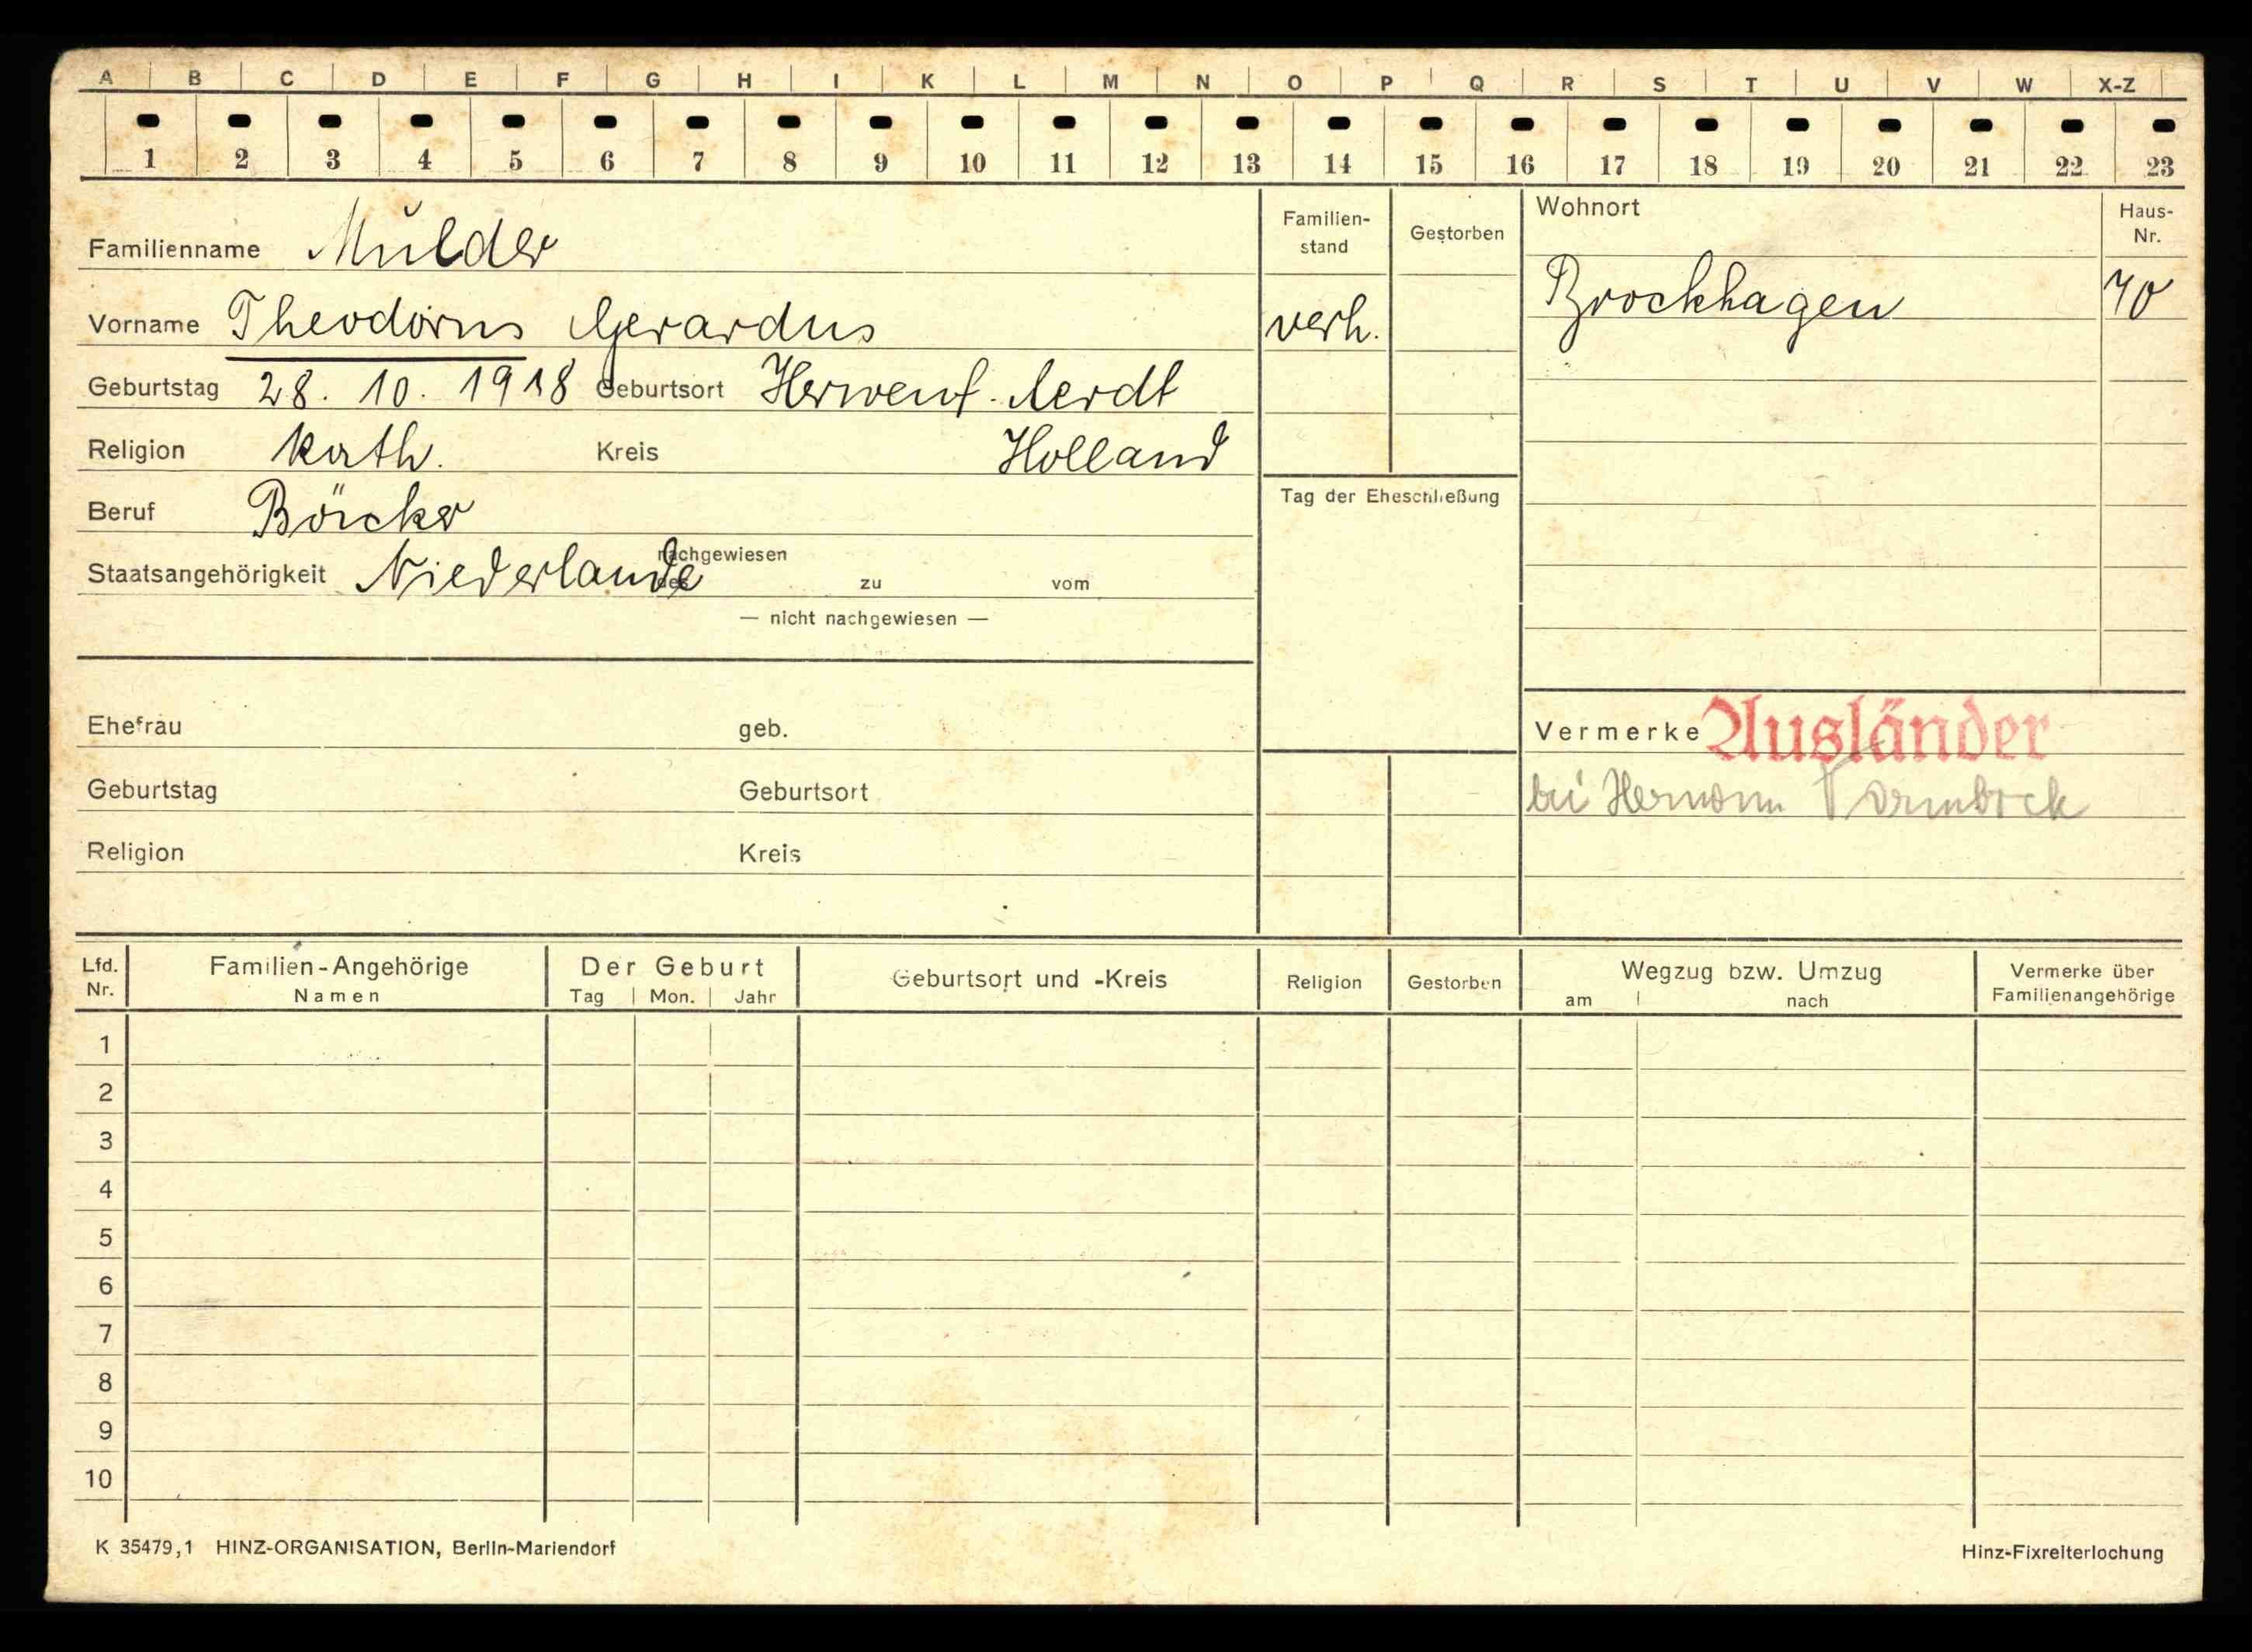 A B C D E F G H I K L M N O P Q R S T U V W X-Z
1 2 3 4 5 6 7 8 9 10 11 12 13 14 15 16 17 18 19 20 21 22 23
Familienname Mulder
Vorname Theodorus Gerardus
Geburtstag 28. 10. 1918 Geburtsort Herwen-Aerdt
Religion kath. Kreis Holland
Beruf Bäcker
Staatsangehörigkeit Niederlande nachgewiesen
des zu vom
— nicht nachgewiesen —
Familien-
stand
verh.
Gestorben
Tag der Eheschließung
Wohnort
Haus-
Nr.
Brockhagen 70
Ehefrau geb.
Geburtstag Geburtsort
Religion Kreis
Vermerke Ausländer
bei Hermann
Lfd.
Nr.
Familien-Angehörige
Namen
Der Geburt
Tag Mon. Jahr
Geburtsort und -Kreis
Religion
Gestorben
Wegzug bzw. Umzug
am nach
Vermerke über
Familienangehörige
1
2
3
4
5
6
7
8
9
10
K 35479,1 HINZ-ORGANISATION, Berlin-Mariendorf
Hinz-Fixreiterlochung